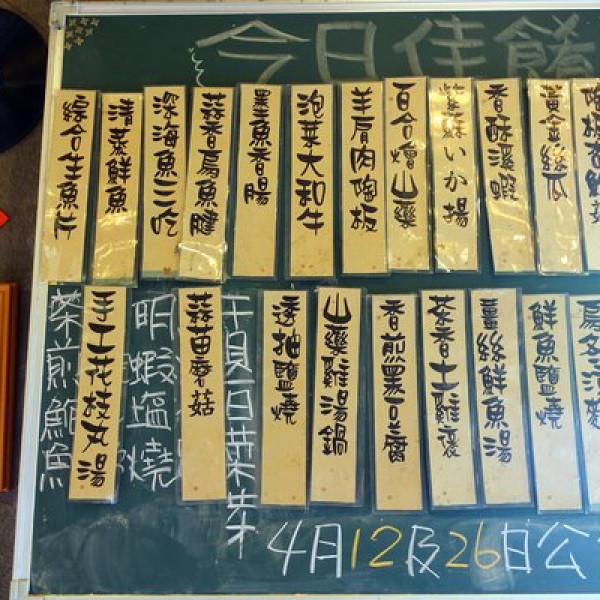 今日佳餚
黃金絲瓜
香酥溪蝦
紫蘇いか揚
百合燴山藥
羊肩肉陶板
泡菜大和牛
墨魚香腸
蒜香烏魚腱
深海魚三吃
清蒸鮮魚
綜合生魚片
鮮魚鹽燒
薑絲鮮魚湯
茶香土雞
香煎黑豆腐
山藥雞湯鍋
透抽鹽燒
干貝白菜
蒜苗蘑菇
明蝦塩燒
手工花枝丸湯
煎魚
4月12及26日公